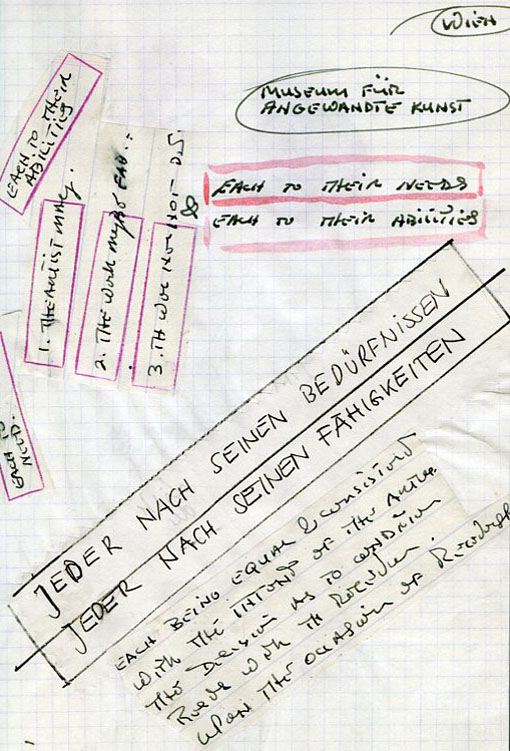 WIEN
MUSEUM FÜR
ANGEWANDTE KUNST
EACH TO THEIR
ABILITIES
1. THE ARTIST MAY
2. THE WORK MAY BE
3. TH WOR NOT
EACH TO THEIR NEEDS
&
EACH TO THEIR ABILITIES
EACH TO
NEED.
JEDER NACH SEINEN BEDÜRFNISSEN
JEDER NACH SEINEN FÄHIGKEITEN
EACH BEING EQUAL & CONSISTENT
WITH THE INTENT OF THE
THE DECISION AS TO CONDITION
WITH
UPON THE OCCASION OF